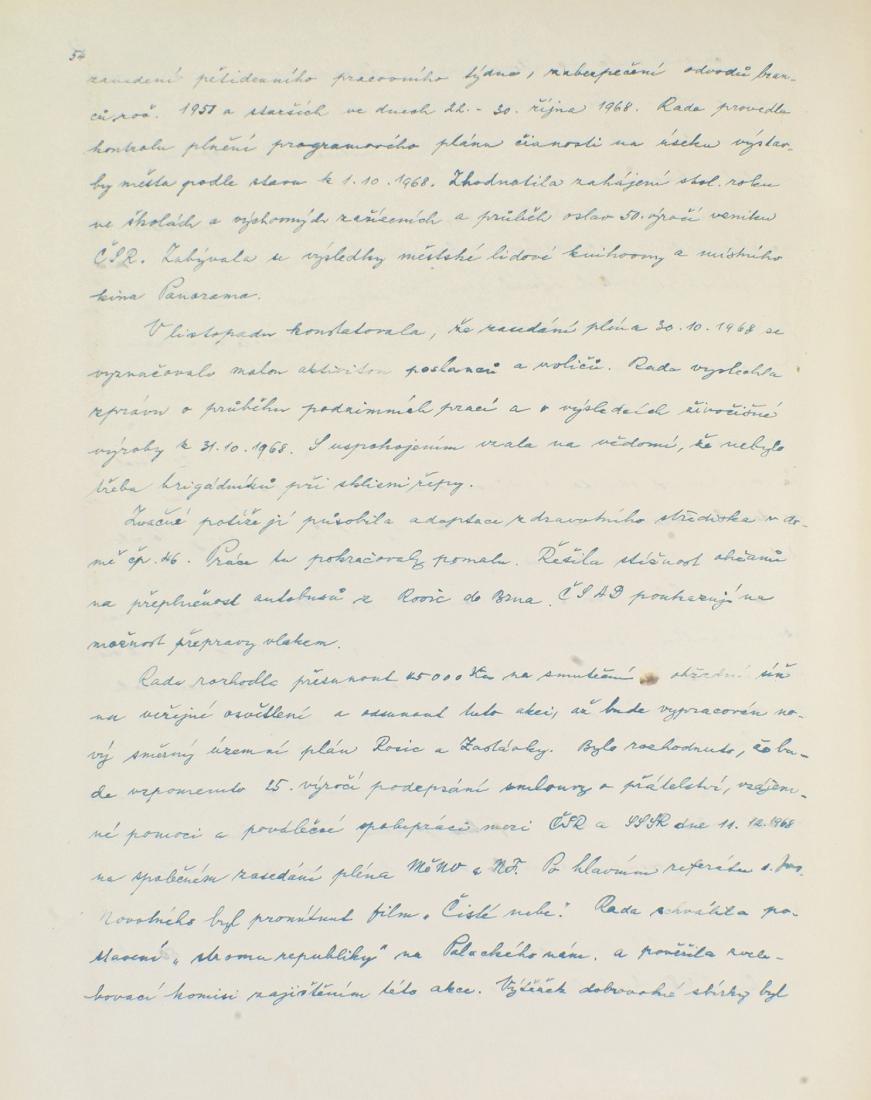 54
zavedení pětidenního pracovního týdne, zabezpečení odvodů bran-
ců roč. 1951 a starších ve dnech 22. - 30. října 1968. Rada provedla
kontrolu plnění programového plánu činnosti na úseku výstav-
by města podle stavu k 1.10.1968. Zhodnotila zahájení škol. roku
ve školách a výchovných zařízeních a průběh oslav 50. výročí vzniku
ČSR. Zabývala se výsledky městské lidové knihovny a místního
kina Panorama.
V listopadu konstatovala, že zasedání pléna 30.10.1968 se
vyznačovalo malou aktivitou poslanců a voličů. Rada vyslechla
zprávu o průběhu podzimních prací a o výsledcích živočišné
výroby k 31.10.1968. S uspokojením vzala na vědomí, že nebylo
třeba brigádníků při sklizni řepy.
Značné potíže jí působila adaptace zdravotního střediska v do-
mě čp. 46. Práce tu pokračovaly pomalu. Řešila stížnost občanů
na přeplněnost autobusů z Rosic do Brna. ČSAD poukazují na
možnost přepravy vlakem.
Rada rozhodla přesunout 45000 Kčs na smuteční obřadní síň
na veřejné osvětlení a odsunout tuto akci, až bude vypracován no-
vý směrný územní plán Rosic a Zastávky. Bylo rozhodnuto, že bu-
de vzpomenuto 25. výročí podepsání smlouvy o přátelství, vzájem-
né pomoci a poválečné spolupráci mezi ČSR a SSSR dne 11. 12. 1968
na společném zasedání pléna MěNV a NF. Po hlavním referátu s.
Novotného byl promítnut film „Čisté nebe“. Rada schválila po-
stavení „stromu republiky“ na Palackého nám. a pověřila zvele-
bovací komisi zajištěním této akce. Výtěžek dobrovolné sbírky byl